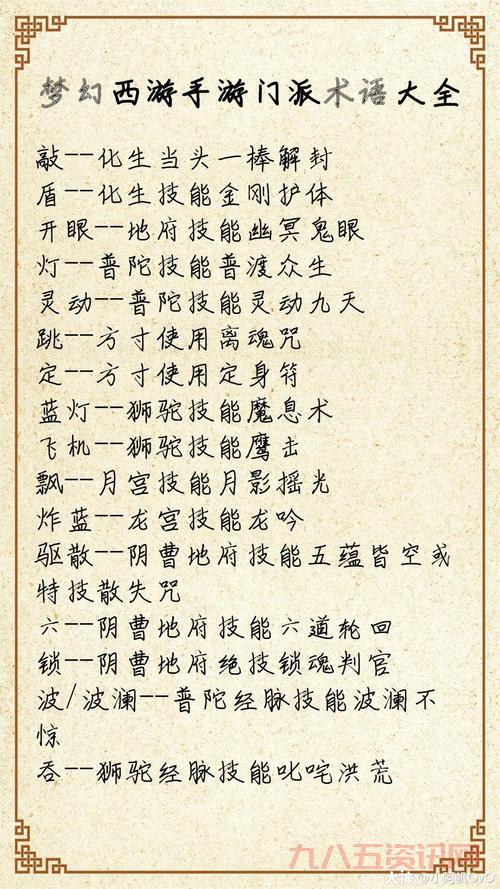 梦幻西游手游门派术语大全
敲--化生当头一棒解封
盾--化生技能金刚护体
开眼--地府技能幽冥鬼眼
灯--普陀技能普渡众生
灵动--普陀技能灵动九天
跳--方寸使用离魂咒
定--方寸使用定身符
蓝灯--狮驼技能魔息术
飞机--狮驼技能鹰击
飘--月宫技能月影摇光
炸蓝--龙宫技能龙吟
驱散--阴曹地府技能五蕴皆空或
特技散失咒
六--阴曹地府技能六道轮回
锁--阴曹地府绝技锁魂判官
波/波澜--普陀经脉技能波澜不
惊
吞--狮驼经脉技能叱咤洪荒
九八五资讯网
大神 @小